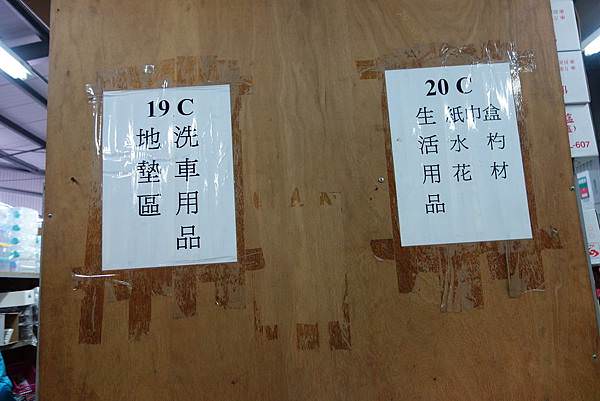 19 C
洗車用品
地墊區
20 C
生活用品
紙巾盒
水杓
花材
L-607